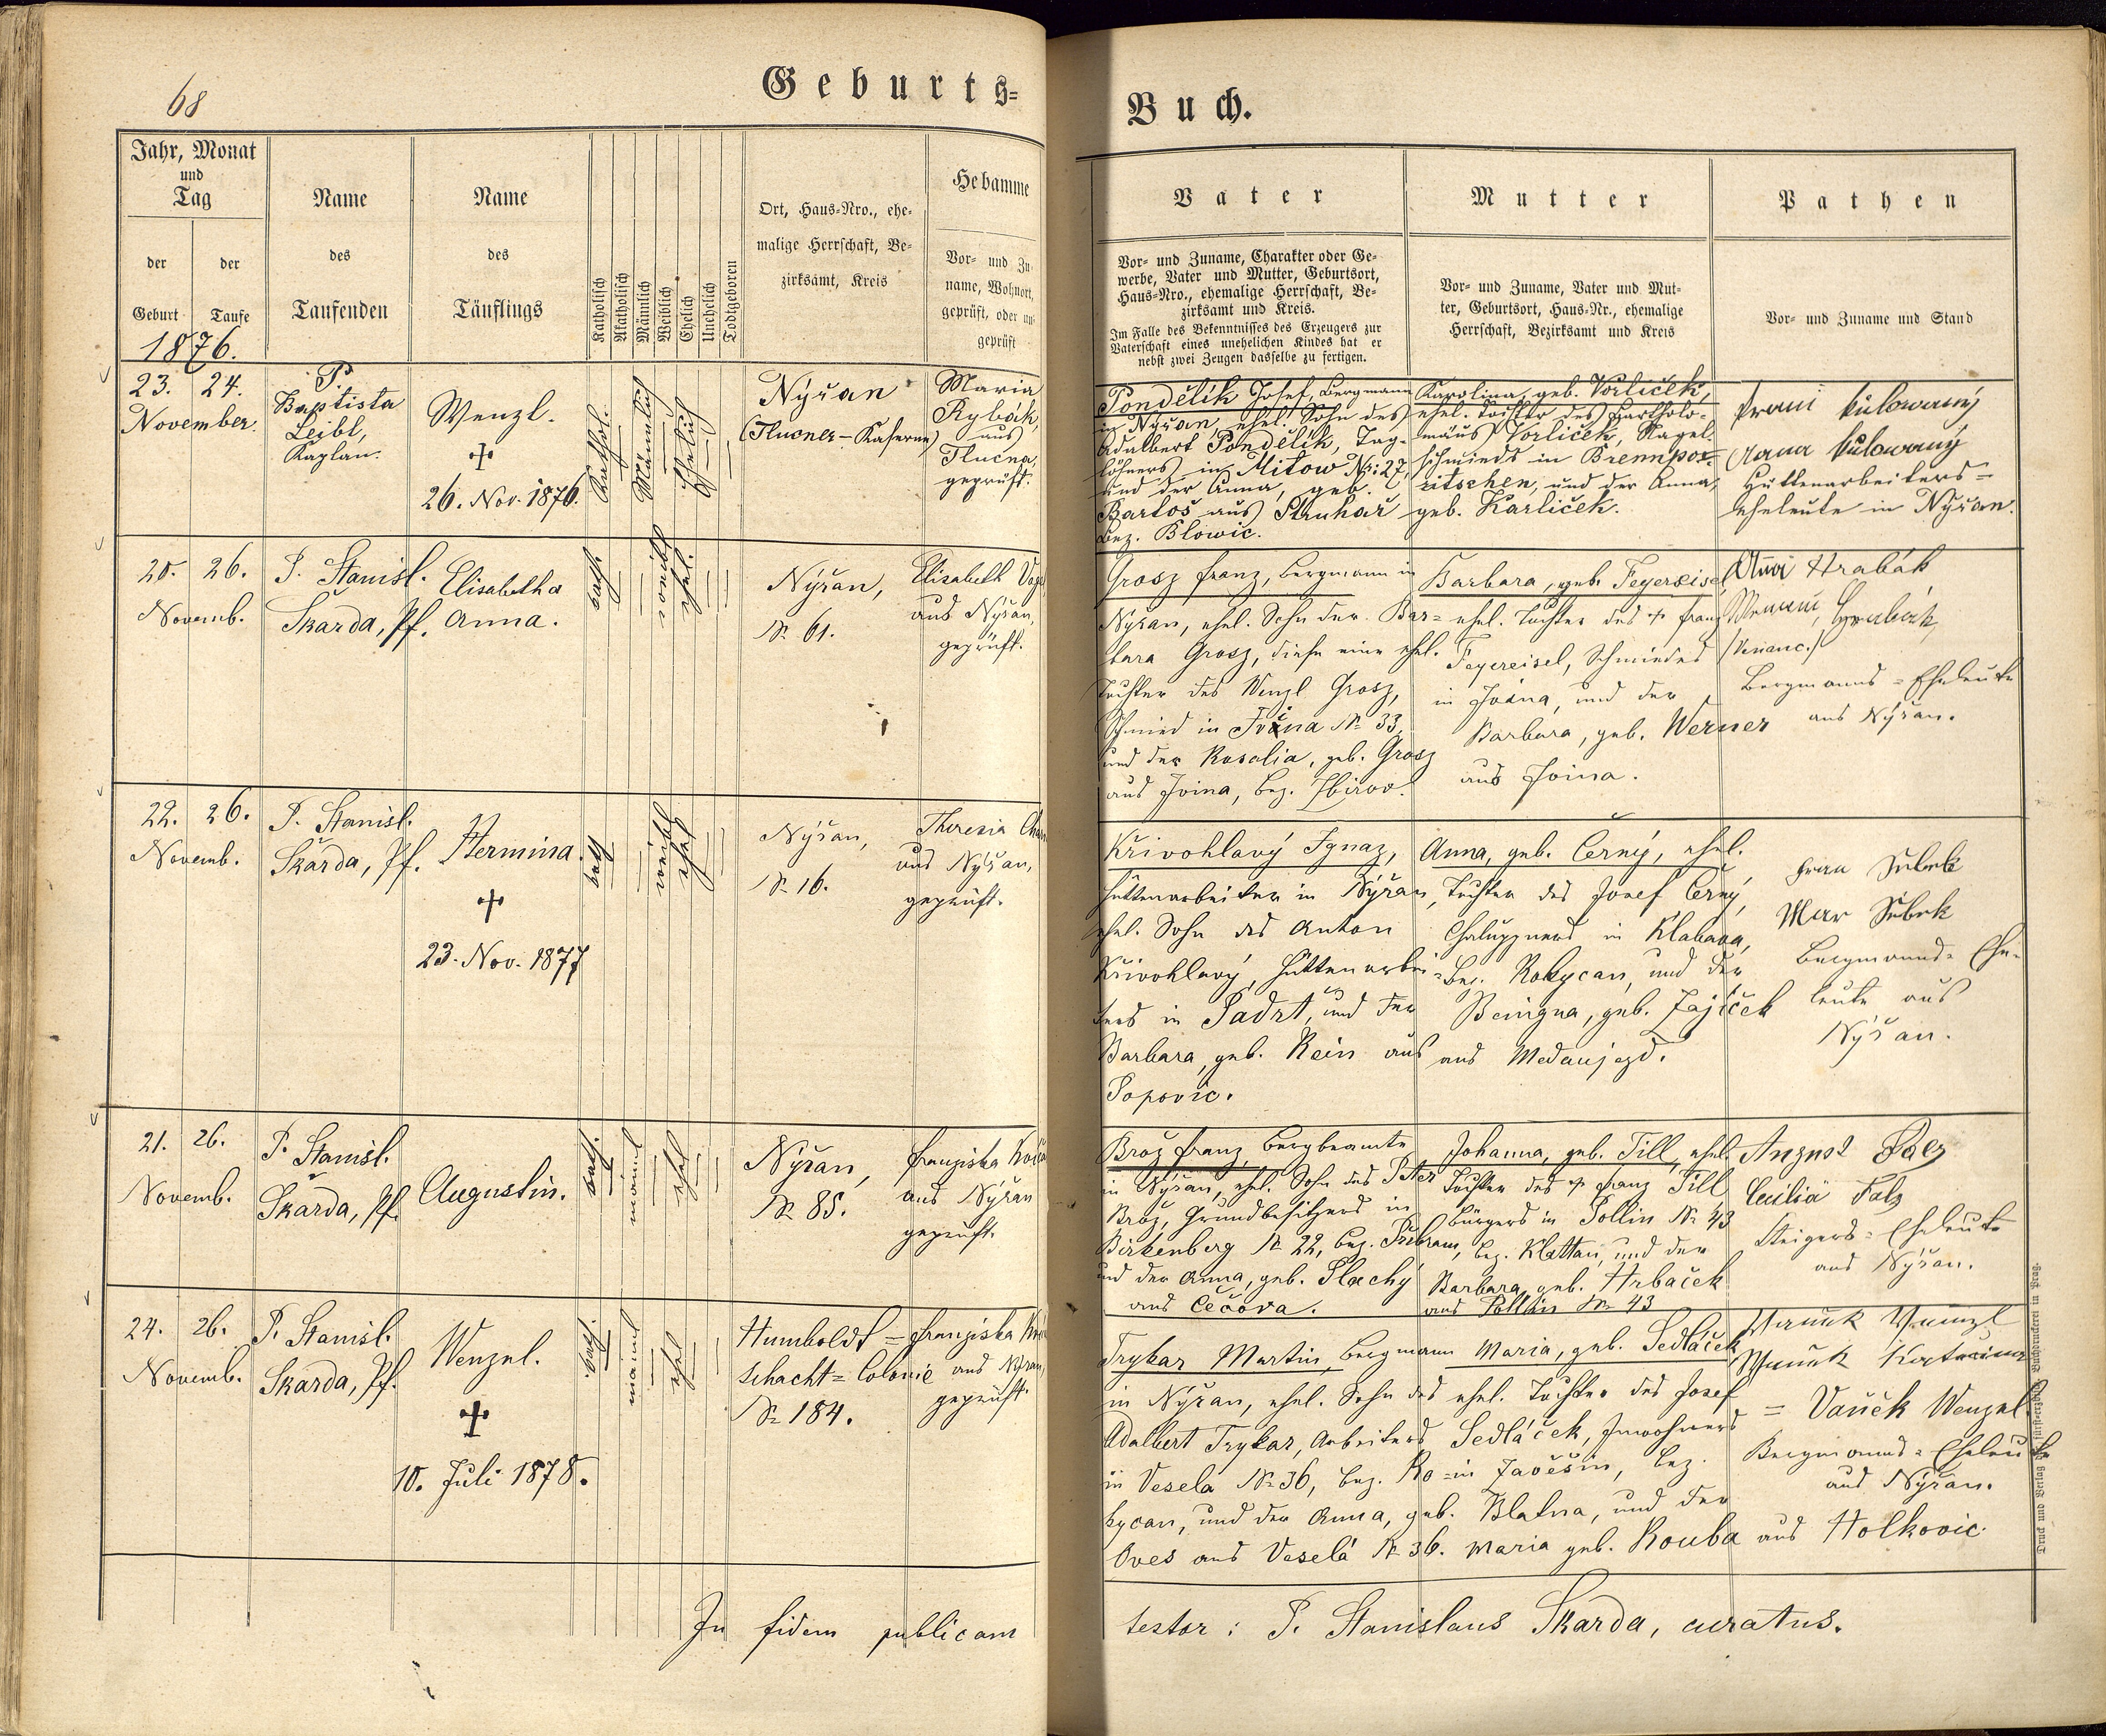 68
Geburts=
Buch.
Jahr, Monat
und
Tag
der
Geburt
der
Taufe
1876.
Name
des
Taufenden
Name
des
Täuflings
Katholisch
Akatholisch
Männlich
Weiblich
Ehelich
Unehelich
Todtgeboren
Ort, Haus-Nro., ehe-
malige Herrschaft, Be-
zirksamt, Kreis
Hebamme
Vor- und Zu-
name, Wohnort,
geprüft, oder un-
geprüft
Vater
Vor- und Zuname, Charakter oder Ge-
werbe, Vater und Mutter, Geburtsort,
Haus-Nro., ehemalige Herrschaft, Be-
zirksamt und Kreis.
Im Falle des Bekenntnisses des Erzeugers zur
Vaterschaft eines unehelichen Kindes hat er
nebst zwei Zeugen dasselbe zu fertigen.
Mutter
Vor- und Zuname, Vater und Mut-
ter, Geburtsort, Haus-Nr., ehemalige
Herrschaft, Bezirksamt und Kreis
Pathen
Vor- und Zuname und Stand
23. 24.
November.
P.
Baptista
Leibl,
Kaplan.
Wenzl.
26. Nov. 1876.
Kathol.
Männlich
Ehelich
Nýřan
(Tlucner-Kaserne)
Maria
Rybák,
aus
Tlucna,
geprüft.
Pondělík Josef, Bergmann
in Nýřan, ehel. Sohn des
Adalbert Pondělík, Tag-
löhners in Mitow Nr: 27,
und der Anna, geb.
Bartoš aus Struhař
Bez. Blowic.
Karolina, geb. Vorlíček,
ehel. Tochter des Bartholo-
mäus Vorlíček, Nagel-
schmieds in Brennpor-
ritschen, und der Anna,
geb. Karlíček.
Anna
Hüttenarbeiters-
Eheleute in Nýřan.
20. 26.
Novemb.
P. Stanisl.
Škarda, Pf.
Elisabetha
Anna.
kath.
weibl
ehel.
Nýřan,
Nr. 61.
Elisabeth
aus Nýřan,
geprüft.
Grosz Franz, Bergmann in
Nýřan, ehel. Sohn der Bar-
bara Grosz, diese eine ehel.
Tochter des Wenzl Grosz,
Schmied in Ivina Nr. 33,
und der Rosalia, geb. Grosz
aus Jvina, Bez. Zbirov.
Barbara, geb. Feyereisel,
ehel. Tochter des † Franz
Feyereisel, Schmiedes
in Jvina, und der
Barbara, geb. Werner
aus Jvina.
Hrabák
Hrabák,
Bergmanns-Eheleute
aus Nýřan.
22. 26.
Novemb.
P. Stanisl.
Škarda, Pf.
Hermina.
23. Nov. 1877
kath
weibl
ehel
Nýřan,
Nr. 16.
Theresia
aus Nýřan,
geprüft.
Křivohlavý Ignaz,
Hüttenarbeiter in Nýřan,
ehel. Sohn des Anton
Křivohlavý, Hüttenarbei-
ters in Padrt, und der
Barbara, geb. Rein aus
Popovic.
Anna, geb. Černý, ehel.
Tochter des Josef Černý,
Chaluppners in Klabava,
Bez. Rokycan, und der
Benigna, geb. Zajíček
aus Medaujezd.
Bergmanns-Ehe-
leute aus
Nýřan.
21. 26.
Novemb.
P. Stanisl.
Škarda, Pf.
Augustin.
kath.
männl
ehel
Nýřan,
Nr. 85.
Franziska
aus Nýřan
geprüft.
Brož Franz, Bergbeamte
in Nýřan, ehel. Sohn des Peter
Brož, Grundbesitzers in
Birkenberg Nr. 22, Bez. Přibram,
und der Anna, geb. Plachý
aus Čečova.
Johanna, geb. Till, ehel.
Tochter des † Franz Till
Bürgers in Pollin Nr. 43
Bez. Klattau, und der
Barbara, geb. Hrbaček
aus Pollin Nr. 43
August Falz
Cecilia Falz
Steigers-Eheleute
aus Nýřan.
24. 26.
Novemb.
P. Stanisl.
Škarda, Pf.
Wenzel.
10. Juli 1878.
kath.
männl
ehel
Humboldt=
schacht=Colonie
Nr. 184.
Franziska
aus Nýřan,
geprüft.
Trykar Martin, Bergmann
in Nýřan, ehel. Sohn des
Adalbert Trykar, Arbeiters
in Vesela Nr. 36, Bez. Ro-
kycan, und der Anna, geb.
Oves aus Veselá Nr. 36.
Maria, geb. Sedláček,
ehel. Tochter des Josef
Sedláček, Inwohners
in Zavěšin, Bez.
Blatna, und der
Maria geb. Kouba aus Holkovic.
= Vaněk Wenzel
Bergmanns-Eheleute
aus Nýřan.
In fidem publicam
testor: P. Stanislaus Škarda, curatus.